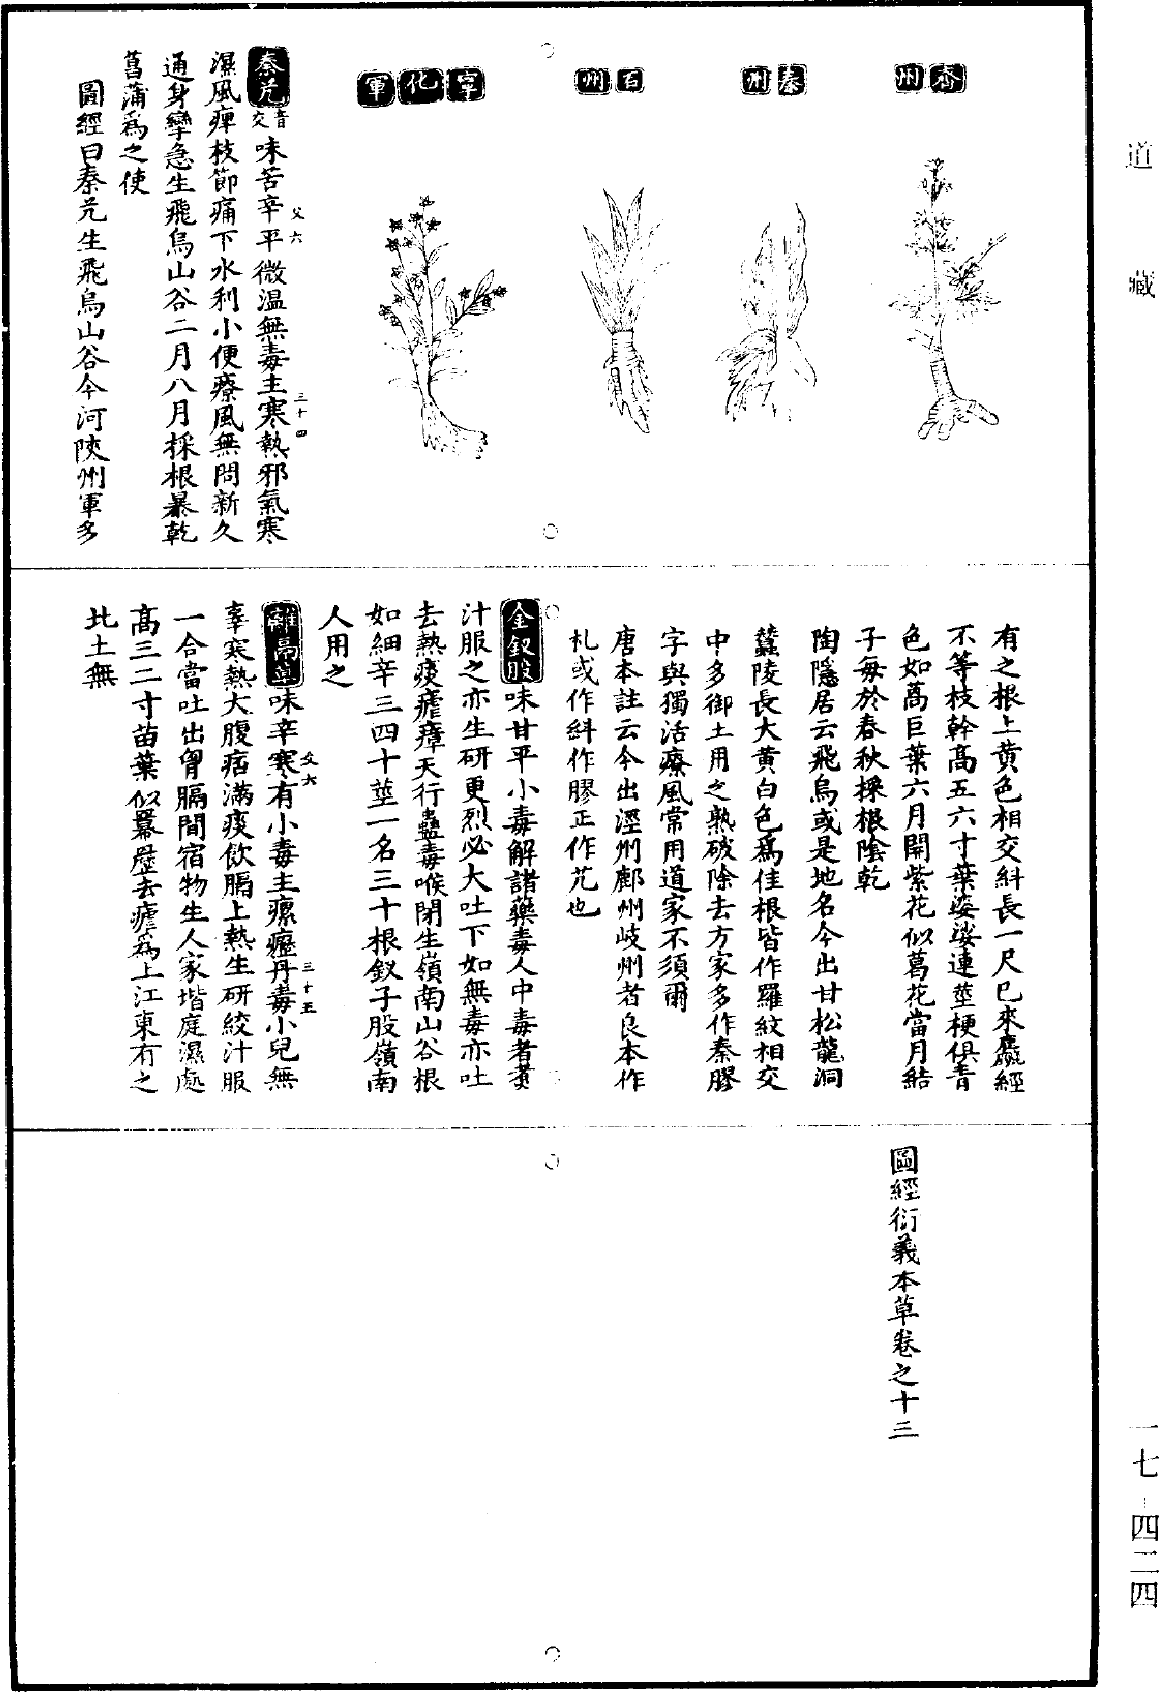 道藏
齊州
秦州
石州
寧化軍
秦艽音交味苦辛平微温無毒主寒熱邪氣寒
濕風痺枝節痛下水利小便療風無問新久
通身攣急生飛鳥山谷二月八月採根暴乾
菖蒲爲之使
圖經曰秦艽生飛鳥山谷今河陝州軍多
父六
三十四
有之根上黄色相交糾長一尺巳來麄經
不等枝幹高五六寸葉婆娑連莖梗俱青
色如萵巨葉六月開紫花似葛花當月結
子每於春秋採根陰乾
陶隱居云飛鳥或是地名今出甘松龍洞
蠶陵長大黄白色爲佳根皆作羅紋相交
中多御土用之熟破除去方家多作秦膠
字與獨活療風常用道家不須爾
唐本註云今出涇州鄜州岐州者良本作
札或作糾作膠正作艽也
金釵股味甘平小毒解諸藥毒人中毒者煑
汁服之亦生研更烈必大吐下如無毒亦吐
去熱痰瘧瘴天行蠱毒喉閉生嶺南山谷根
如細辛三四十莖一名三十根釵子股嶺南
人用之
離鬲草味辛寒有小毒主瘰癧丹毒小兒無
辜寒熱大腹痞滿痰飲膈上熱生研絞汁服
一合當吐出胷膈間宿物生人家堦庭濕處
高三二寸苗葉似羃䍥去瘧爲上江東有之
北土無
父六
三十五
圖經衍義本草卷之十三
一七-四二四